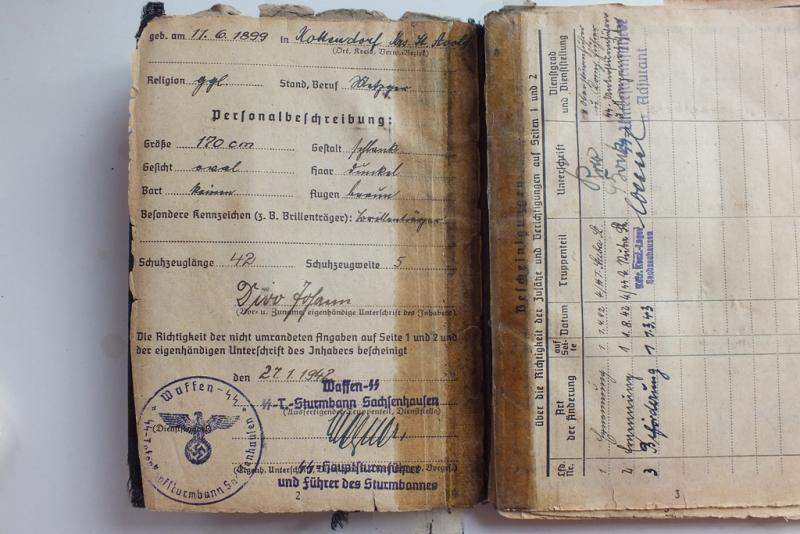 geb. am 11. 6. 1899 in Rottendorf Krs. St. Avold
(Ort, Kreis, Verw.-Bezirk)
Religion ggl. Stand, Beruf Metzger
Personalbeschreibung:
Größe 170 cm Gestalt schlank
Gesicht oval Haar dunkel
Bart keinen Augen braun
Besondere Kennzeichen (z. B. Brillenträger): Brillenträger
Schuhzeuglänge 42 Schuhzeugweite 5
Divo Johann
(Vor- u. Zuname, eigenhändige Unterschrift des Inhabers)
Die Richtigkeit der nicht umrandeten Angaben auf Seite 1 und 2 und
der eigenhändigen Unterschrift des Inhabers bescheinigt
den 27. 1. 1942
Waffen-SS
SS-T.-Sturmbann Sachsenhausen
(Ausfertigender Truppenteil, Dienststelle)
Waffen-SS
(Dienstsiegel)
SS-Hauptsturmführer
und Führer des Sturmbannes
2
Bescheinigungen
über die Richtigkeit der Zusätze und Berichtigungen auf Seiten 1 und 2
Lfd. Nr. Art der Änderung auf Seite Datum Truppenteil Unterschrift Dienstgrad und Dienststellung
1. Ernennung 1 1.4.42
2. Ernennung 1 1.8.42
3 Beförderung 1 1.3.43 Kdtr. Konz.-Lager Sachsenhausen
u. Adjutant
3